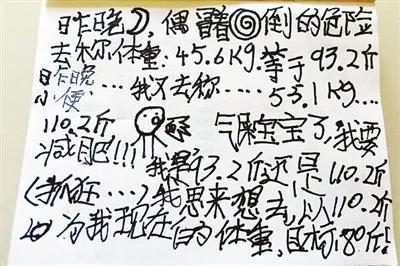 昨晚,偶冒着倒的危险
去称体重:45.6Kg.等于93.2斤
昨晚……我又去称……55.1Kg…
小便
110.2斤 气课宝宝了,我要
减肥!!! 我是93.2斤还是110.2斤
(抓狂…)我思来想去,以110.2斤
为我现在的体重,目标:80斤!